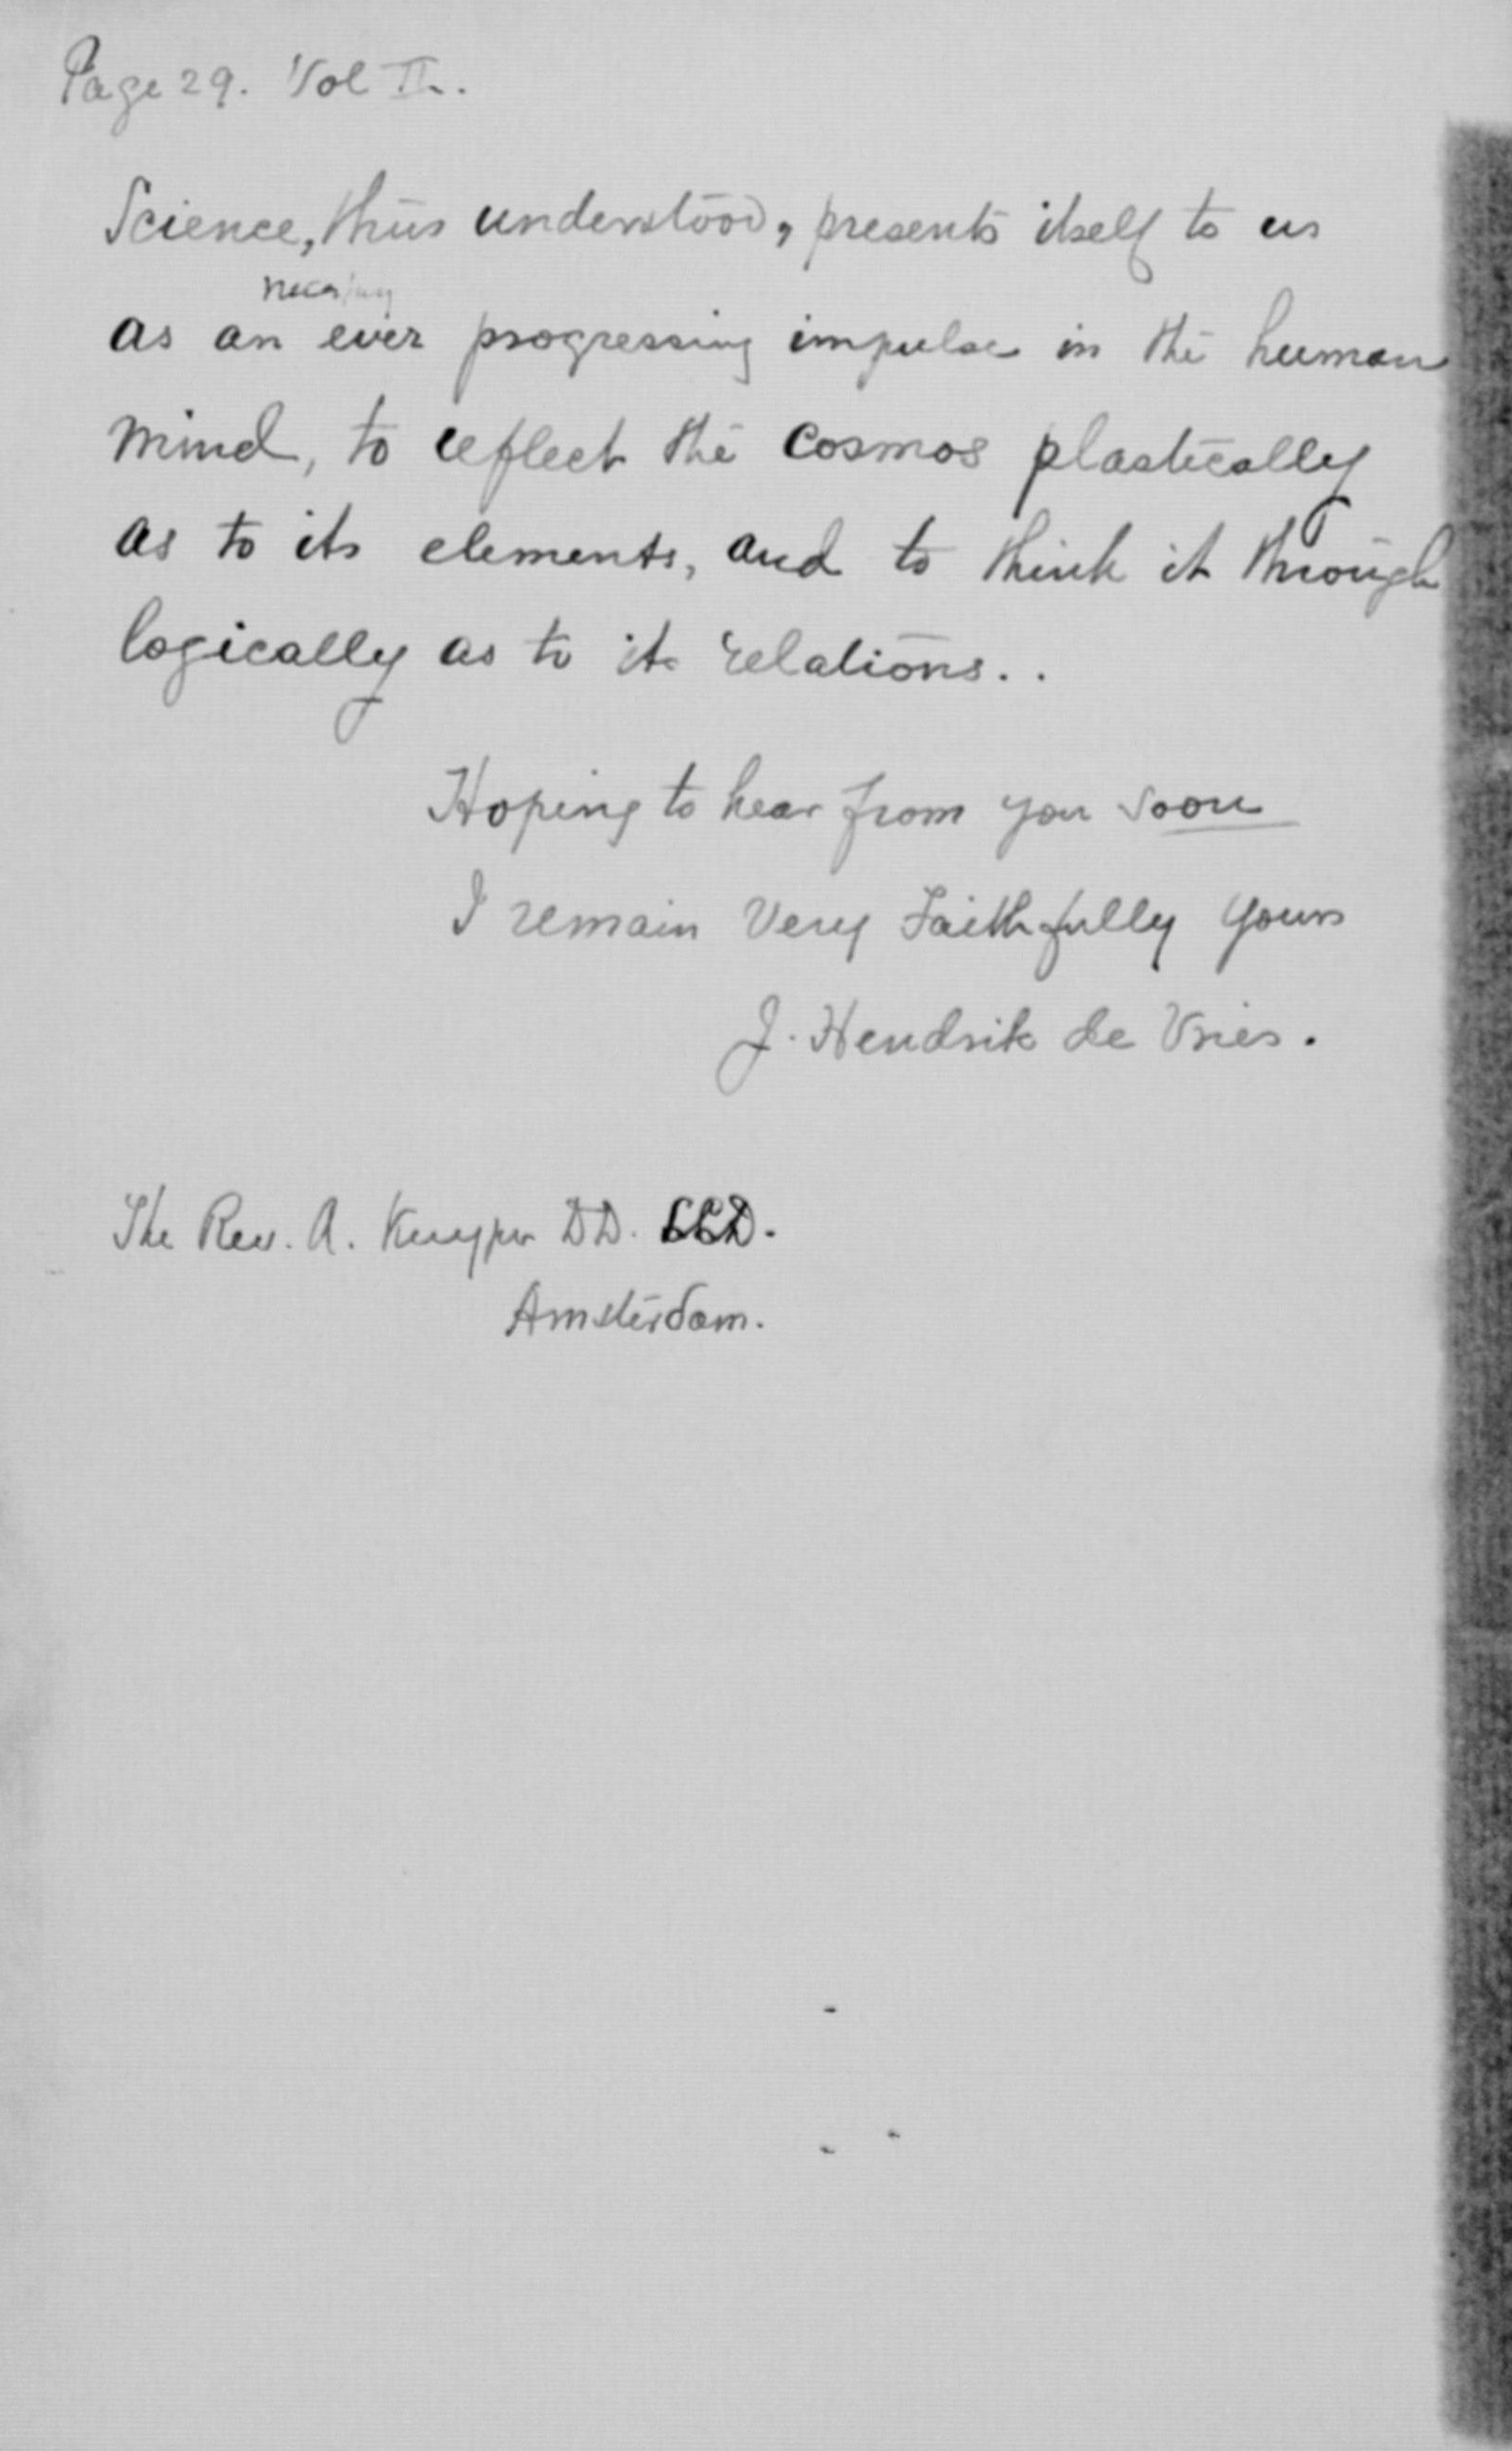 Page 29. Vol II.
Science, thus understood, presents itself to us
as an ever progressing impulse in the human
mind, to reflect the cosmos plastically
as to its elements, and to think it through
logically as to its relations..
Hoping to hear from you soon
I remain Very Faithfully Yours
J. Hendrik de Vries.
The Rev. A. Kuyper DD. LLD.
Amsterdam.